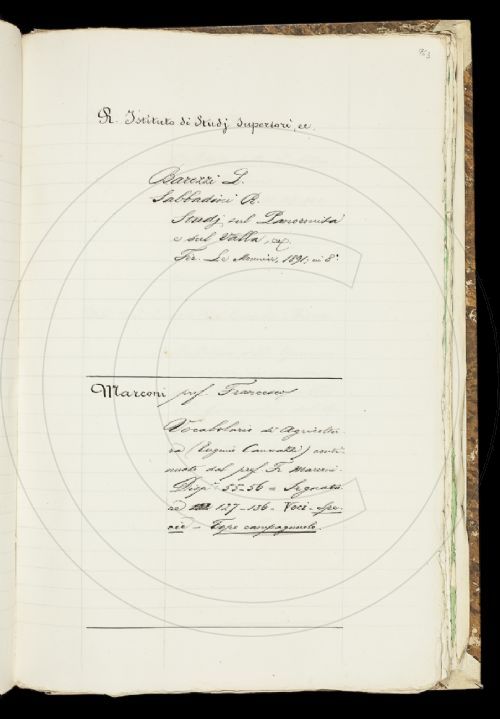 R. Istituto di Studj Superiori, ec.
Barozzi L.
Sabbadini R.
Studj sul Panormita
e sul Valla, ec.
Fir. Le Monnier, 1891; in 8°
Marconi prof. Francesco
Vocabolario di Agricoltu-
ra (Eugenio Canevazzi) conti-
nuato dal prof. F. Marconi.
Disp. 55-56 = Segnatu-
re 127-136 - Voci: spe-
cie - Topo campagnuolo.